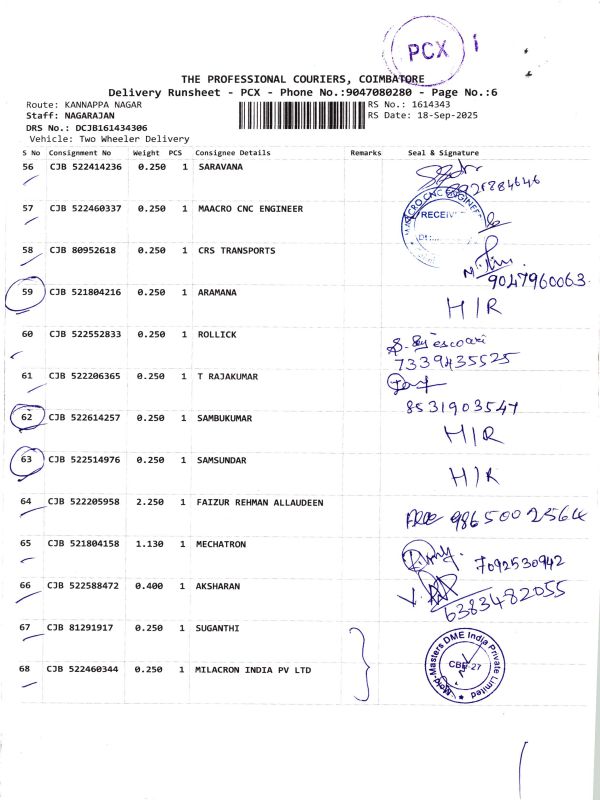 PCX 1
THE PROFESSIONAL COURIERS, COIMBATORE
Delivery Runsheet - PCX - Phone No.:9047080280 - Page No.:6
Route: KANNAPPA NAGAR RS No.: 1614343
Staff: NAGARAJAN RS Date: 18-Sep-2025
DRS No.: DCJB161434306
Vehicle: Two Wheeler Delivery
S No Consignment No Weight PCS Consignee Details Remarks Seal & Signature
56 CJB 522414236 0.250 1 SARAVANA
57 CJB 522460337 0.250 1 MAACRO CNC ENGINEER MAACRO CNC ENGINEER
58 CJB 80952618 0.250 1 CRS TRANSPORTS 9047960063
59 CJB 521804216 0.250 1 ARAMANA H/R
60 CJB 522552833 0.250 1 ROLLICK 7339435525
61 CJB 522206365 0.250 1 T RAJAKUMAR 8531903547
62 CJB 522614257 0.250 1 SAMBUKUMAR H/R
63 CJB 522514976 0.250 1 SAMSUNDAR H/R
64 CJB 522205958 2.250 1 FAIZUR REHMAN ALLAUDEEN 9865002564
65 CJB 521804158 1.130 1 MECHATRON 7092530942
66 CJB 522588472 0.400 1 AKSHARAN 6383482055
67 CJB 81291917 0.250 1 SUGANTHI
68 CJB 522460344 0.250 1 MILACRON INDIA PV LTD Mold-Masters DME India Private Limited CBE-27